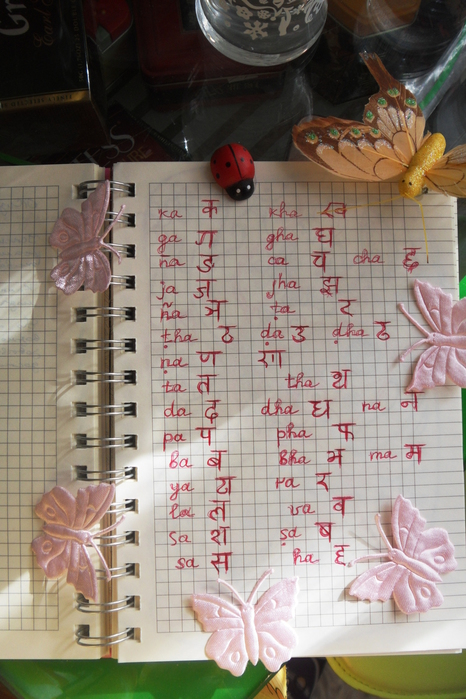 ka क kha ख
ga ग gha घ
ṅa ङ ca च cha छ
ja ज jha झ
ña ञ ṭa ट
ṭha ठ ḍa ड ḍha ढ
ṇa ण
ta त tha थ
da द dha ध na न
pa प pha फ
ba ब bha भ ma म
ya य ra र
la ल va व
śa श ṣa ष
sa स ha ह